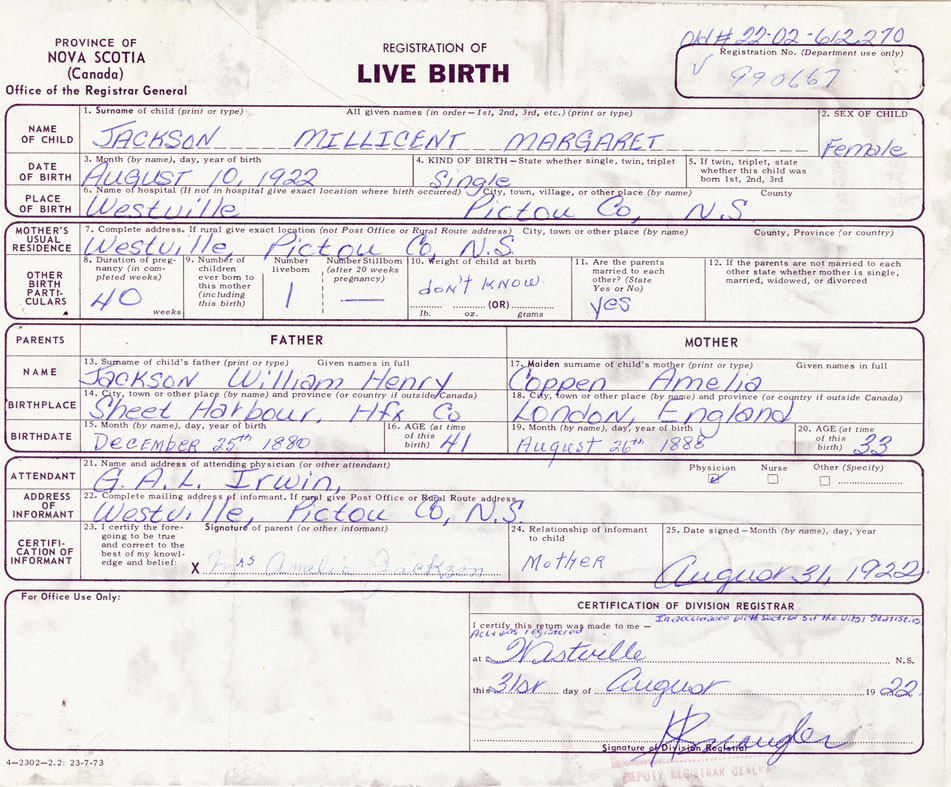 Old # 22-02-612270
PROVINCE OF
NOVA SCOTIA
(Canada)
Office of the Registrar General
REGISTRATION OF
LIVE BIRTH
Registration No. (Department use only)
990667
NAME
OF CHILD
1. Surname of child (print or type) All given names (in order—1st, 2nd, 3rd, etc.) (print or type)
JACKSON MILLICENT MARGARET
2. SEX OF CHILD
Female
DATE
OF BIRTH
3. Month (by name), day, year of birth
AUGUST 10, 1922
4. KIND OF BIRTH—State whether single, twin, triplet
Single
5. If twin, triplet, state
whether this child was
born 1st, 2nd, 3rd
PLACE
OF BIRTH
6. Name of hospital (If not in hospital give exact location where birth occurred) City, town, village, or other place (by name) County
Westville Pictou Co, N.S.
MOTHER'S
USUAL
RESIDENCE
7. Complete address. If rural give exact location (not Post Office or Rural Route address) City, town or other place (by name) County, Province (or country)
Westville, Pictou Co, N.S.
OTHER
BIRTH
PARTI-
CULARS
8. Duration of preg-
nancy (in com-
pleted weeks)
40
weeks
9. Number of
children
ever born to
this mother
(including
this birth)
Number
liveborn
1
Number Stillborn
(after 20 weeks
pregnancy)
—
10. Weight of child at birth
don't know.
(OR)
lb. oz. grams
11. Are the parents
married to each
other? (State
Yes or No)
yes
12. If the parents are not married to each
other state whether mother is single,
married, widowed, or divorced
PARENTS FATHER MOTHER
NAME
13. Surname of child's father (print or type) Given names in full
Jackson William Henry
17. Maiden surname of child's mother (print or type) Given names in full
Coppen Amelia
BIRTHPLACE
14. City, town or other place (by name) and province (or country if outside Canada)
Sheet Harbour, Hfx Co
18. City, town or other place (by name) and province (or country if outside Canada)
London, England
BIRTHDATE
15. Month (by name), day, year of birth
December 25th 1880
16. AGE (at time
of this
birth)
41
19. Month (by name), day, year of birth
August 26th 1888
20. AGE (at time
of this
birth)
33
ATTENDANT
21. Name and address of attending physician (or other attendant)
G.A.L. Irwin,
Physician Nurse Other (Specify)
ADDRESS
OF
INFORMANT
22. Complete mailing address of informant. If rural give Post Office or Rural Route address
Westville, Pictou Co, N.S.
CERTIFI-
CATION OF
INFORMANT
23. I certify the fore-
going to be true
and correct to the
best of my knowl-
edge and belief:
Signature of parent (or other informant)
X Mrs Amelia Jackson
24. Relationship of informant
to child
Mother
25. Date signed—Month (by name), day, year
August 31, 1922.
For Office Use Only:
CERTIFICATION OF DIVISION REGISTRAR
I certify this return was made to me — In accordance with Section 5 of the Vital Statistics
Act was registered
at Westville N.S.
this 31st day of August 1922
Signature of Division Registrar
DEPUTY REGISTRAR GENERAL
4—2302—2.2: 23-7-73